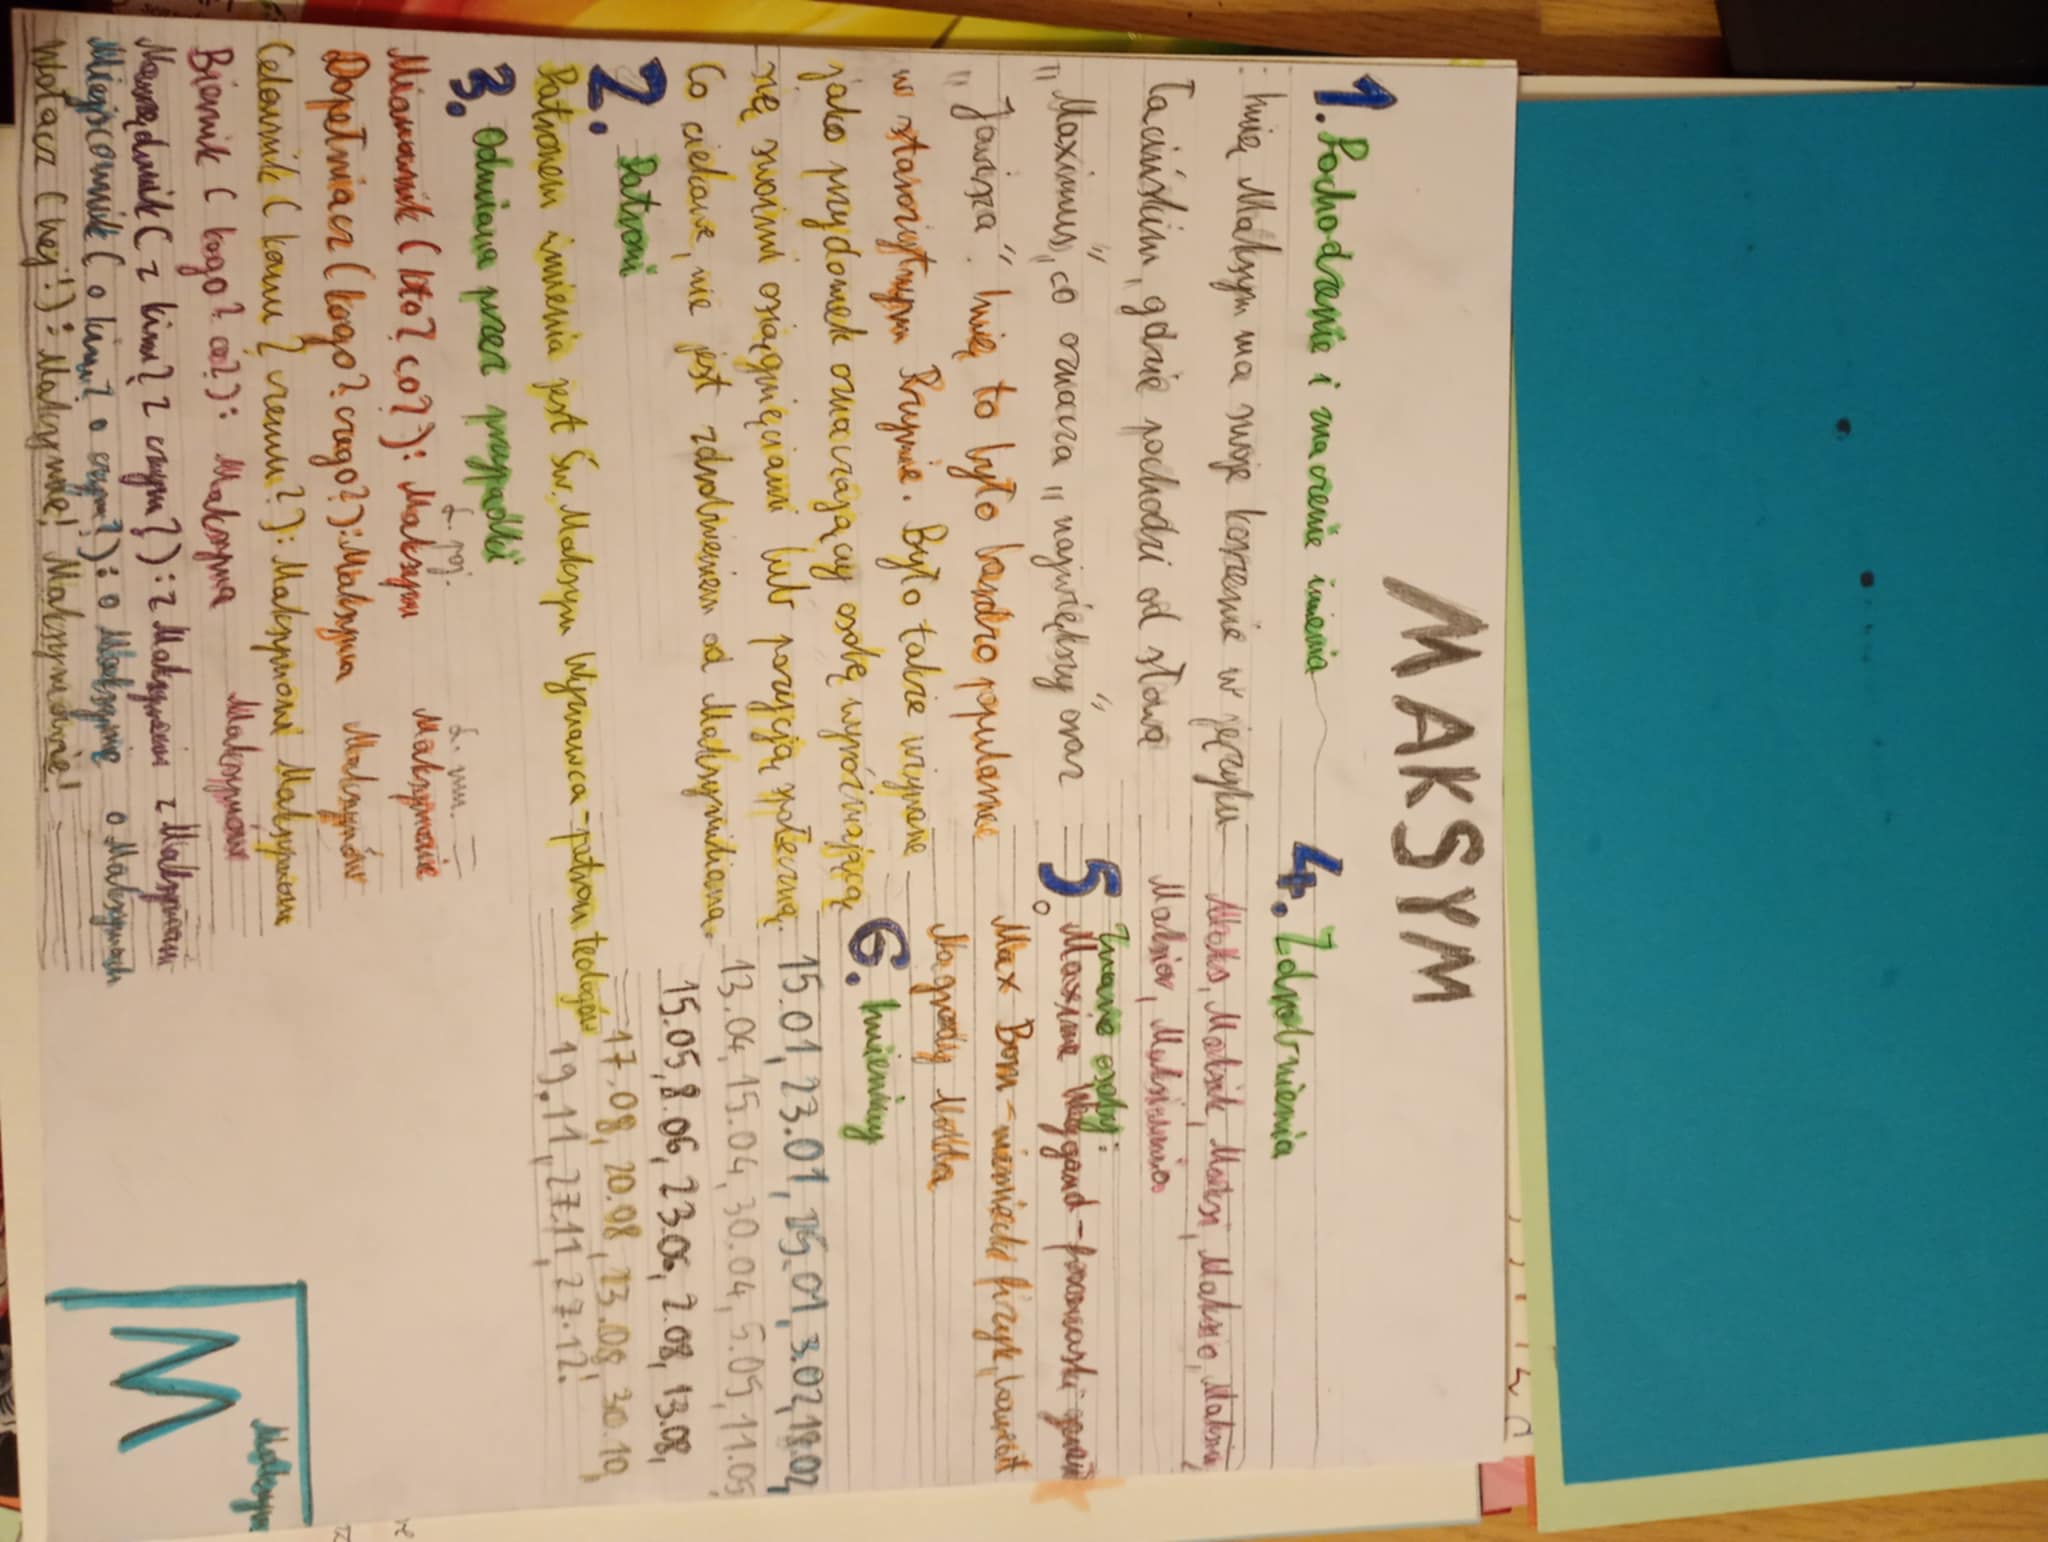 MAKSYM
1. Pochodzenie i znaczenie imienia
Imię Maksym ma swoje korzenie w języku
łacińskim, gdzie pochodzi od słowa
„Maximus”, co oznacza „największy” oraz
„Jowisza”. Imię to było bardzo popularne
w starożytnym Rzymie. Było także używane
jako przydomek oznaczający osobę wyróżniającą
się swoimi osiągnięciami lub pozycją społeczną.
Co ciekawe, nie jest zdrobnieniem od Maksymiliana.
2. Patroni
Patronem imienia jest Św. Maksym Wyznawca - patron teologów
3. Odmiana przez przypadki
l. poj. l. mn.
Mianownik (kto? co?): Maksym Maksymowie
Dopełniacz (kogo? czego?): Maksyma Maksymów
Celownik (komu? czemu?): Maksymowi Maksymom
Biernik (kogo? co?): Maksyma Maksymów
Narzędnik (z kim? z czym?): z Maksymem z Maksymami
Miejscownik (o kim? o czym?): o Maksymie o Maksymach
Wołacz (hej!): Maksymie! Maksymowie!
4. Zdrobnienia
Maks, Maksik, Maksi, Maksio,
Maksior, Maksimus
5. Znane osoby:
Maxime Weygand - francuski
Max Born - niemiecki fizyk, laureat
Nagrody Nobla
6. Imieniny
15.01, 23.01, 25.01, 3.02, 18.02,
13.04, 15.04, 30.04, 5.05, 11.05,
15.05, 8.06, 23.06, 2.08, 13.08,
17.08, 20.08, 23.08, 30.10,
19.11, 27.11, 27.12.
Maksym
M